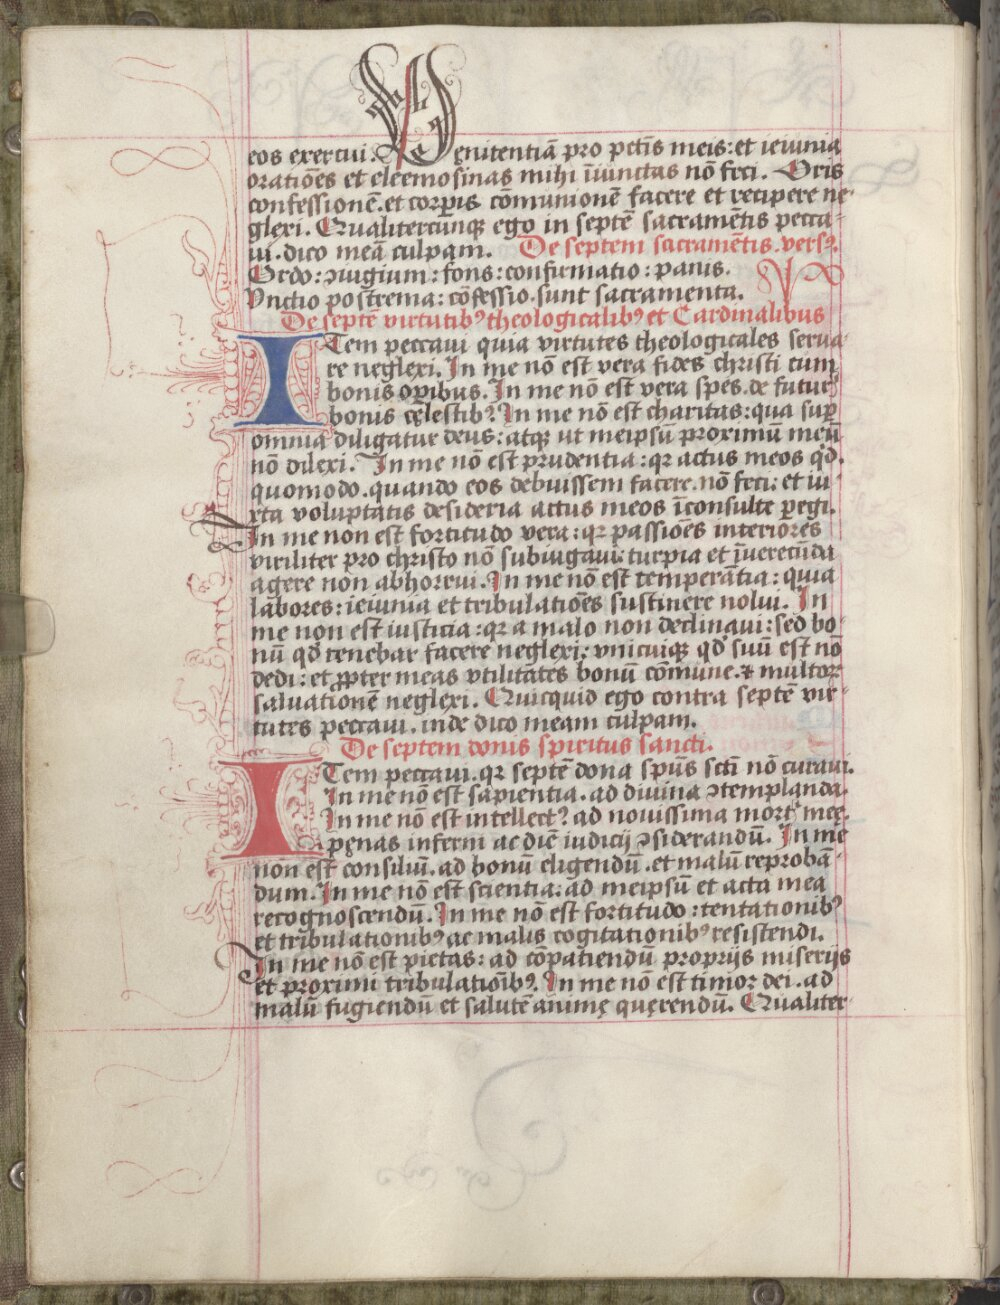 eos exercui. Penitentiā pro pctīs meis: et ieiunia
orationēs et eleemosinas mihi iiunctas nō feci. Oris
confessionē. et corpis cōmunionē facere et recipere ne-
glexi. Qualitercunqȝ ego in septē sacramentis pecca-
ui. dico meā culpam. De septem sacramētis. versꝰ.
Ordo: ɔiugium: fons: confirmatio: panis.
Vnctio postrema: cōfessio. sunt sacramenta.
De septē virtutibꝰ theologicalibꝰ et Cardinalibus
ITem peccaui quia virtutes theologicales serua-
re neglexi. In me nō est vera fides christi cum
bonis opibus. In me nō est vera spes. de futurꝭ
bonis cęlestibꝰ. In me nō est charitas: qua sup
omnia diligatur deus: atqȝ ut meipsū proximū meū
nō dilexi. In me nō est prudentia: qꝛ actus meos qd.
quomodo. quando eos debuissem facere. nō feci: et iu-
xta voluptatis desideria actus meos īconsulte pegi.
In me non est fortitudo vera: qꝛ passiōes interiores
viriliter pro christo nō subiugaui: turpia et īuerecūda
agere non abhorrui. In me nō est temperātia: quia
labores: ieiunia et tribulatiōes sustinere nolui. In
me non est iusticia: qꝛ a malo non declinaui: sed bo-
nū qd tenebar facere neglexi: vnicuiqȝ qd suū est nō
dedi: et ꝓpter meas vtilitates bonū cōmune. ⁊ multoꝝ
saluationē neglexi. Quicquid ego contra septē vir-
tutes peccaui. inde dico meam culpam.
De septem donis spiritus sancti.
ITem peccaui. qꝛ septē dona spūs scti nō curaui.
In me nō est sapientia. ad diuina ɔtemplanda.
In me nō est intellectꝰ. ad nouissima mortꝭ meę.
pęnas inferni ac diē iudicij ɔsiderandū. In me
non est consiliū. ad bonū eligendū. et malū reprobā-
dum. In me nō est scientia: ad meipsū et acta mea
recognoscendū. In me nō est fortitudo: tentationibꝰ
et tribulationibꝰ ac malis cogitationibꝰ resistendi.
In me nō est pietas: ad cōpatiendū proprijs miserijs
et proximi tribulatiōibꝰ. In me nō est timor dei. ad
malū fugiendū et salutē animę quęrendū. Qualiter-